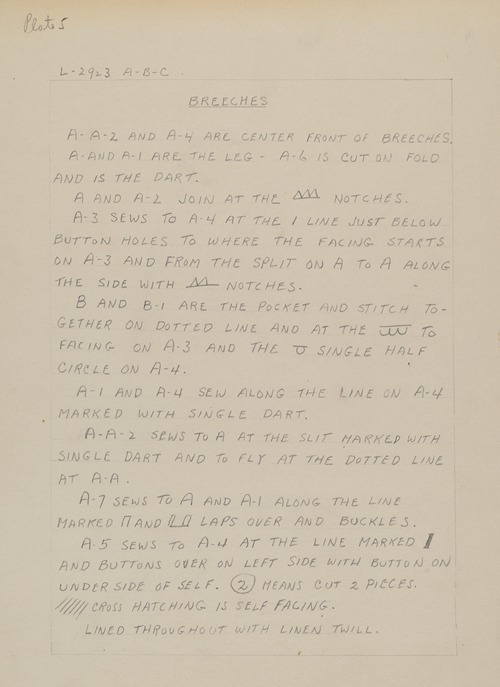 Plate 5
L-2923 A-B-C
BREECHES
A-A-2 AND A-4 ARE CENTER FRONT OF BREECHES.
A-AND A-1 ARE THE LEG - A-6 IS CUT ON FOLD
AND IS THE DART.
A AND A-2 JOIN AT THE NOTCHES.
A-3 SEWS TO A-4 AT THE 1 LINE JUST BELOW
BUTTON HOLES TO WHERE THE FACING STARTS
ON A-3 AND FROM THE SPLIT ON A TO A ALONG
THE SIDE WITH NOTCHES.
B AND B-1 ARE THE POCKET AND STITCH TO-
GETHER ON DOTTED LINE AND AT THE TO
FACING ON A-3 AND THE SINGLE HALF
CIRCLE ON A-4.
A-1 AND A-4 SEW ALONG THE LINE ON A-4
MARKED WITH SINGLE DART.
A-A-2 SEWS TO A AT THE SLIT MARKED WITH
SINGLE DART AND TO FLY AT THE DOTTED LINE
AT A-A.
A-7 SEWS TO A AND A-1 ALONG THE LINE
MARKED AND LAPS OVER AND BUCKLES.
A-5 SEWS TO A-4 AT THE LINE MARKED
AND BUTTONS OVER ON LEFT SIDE WITH BUTTON ON
UNDER SIDE OF SELF. (2) MEANS CUT 2 PIECES.
////// CROSS HATCHING IS SELF FACING.
LINED THROUGHOUT WITH LINEN TWILL.